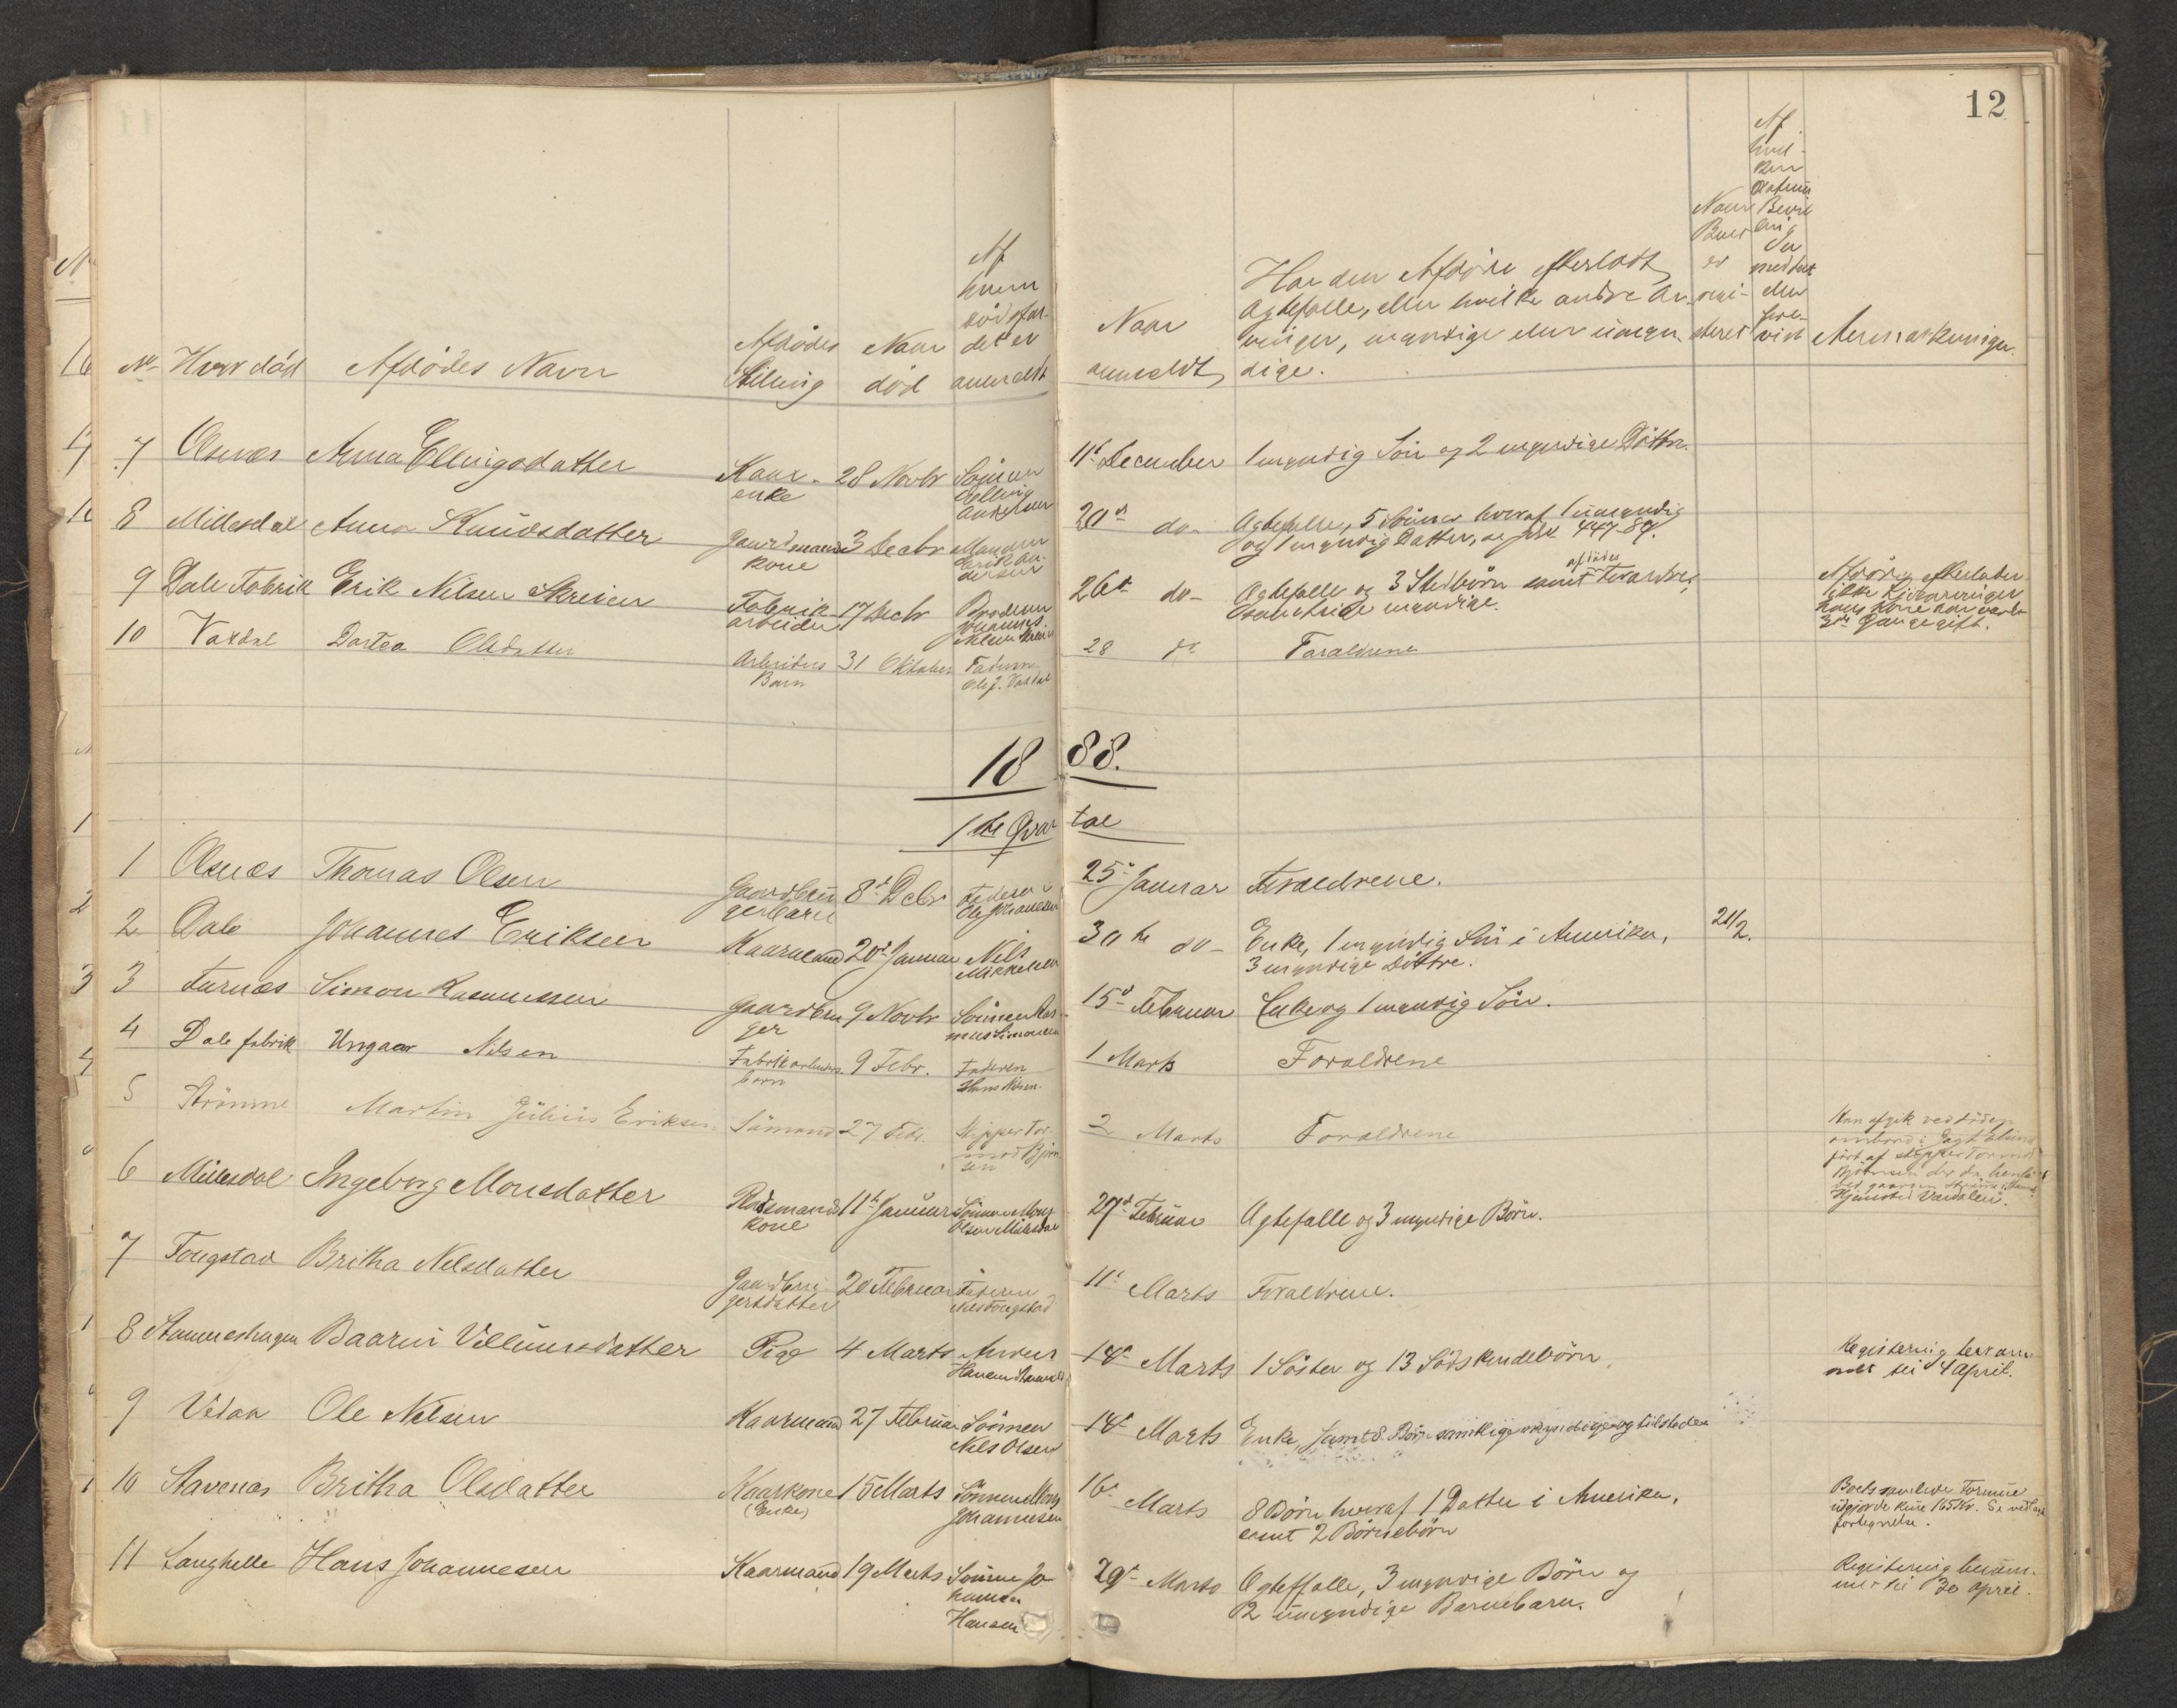 12
No Hvor död Afdödes Navn Afdödes Stilling Naar död Af hvem dödsfaldet er anmeldt Naar anmeldt Har den Afdöde efterladt Ægtefælle, eller hvilke andre Arvinger, myndige eller umyndige. Naar Boet er registeret Anmærkninger.
7 Olsnæs Anna Ellingsdatter Kaarenke 28 Novbr Sönnen Elling 11t December 1 myndig Sön og 2 myndige Döttre.
8 Millesdal Anna Knudsdatter Gaardmandskone 3 Decbr Manden Erik Andersen 20de do Ægtefælle, 5 Sönner hvoraf 1 umyndig og 1 myndig Datter, 447-89.
9 Dale Fabrik Erik Nilsen Skreien Fabrikarbeider 17 Decbr Broderen Johannes Nilsen Skreien 26de do Ægtefælle og 3 Stedbörn samt afdödes Forældre,
10 Vaxdal Dortea Olsdatter Arbeiders Barn 31 Oktober Faderen Ole J. Vaxdal 28 do Forældrene
Afdöde efterlader ikke Livsarvinger hans Kone har været 3de Gange gift.
18 88.
1ste Qvar tal
1 Olsnæs Thomas Olsen Gaardbrugerbarn 8de Debr Faderen Ole Johannesen 25 Januar Forældrene.
2 Dale Johannes Eriksen Kaarmand 20de Januar Nils Mikkelsen 30te do Enke, 1 myndig Sön i Amerika, 3 myndige Döttre. 21/2.
3 Furnæs Simon Rasmussen Gaardbruger 9 Novbr Sönnen Rasmus Simonsen 15de Februar Enke og 1 myndig Sön.
4 Dale fabrik Ungaar Nilsen Fabrikarbeiders barn 9 Febr. Faderen Hans Nilsen. 1 Marts Forældrene
5 Strömme Martin Julius Eriksen Sömand 27 Febr. Skipper Tormod Björnsen 2 Marts Forældrene
Han afgik ved döden ombord i Jagt fört af skipper Tormod Björnsen der da ved gaarden Strömme Hjemsted Værdalen.
6 Millesdal Ingeborg Monsdatter Rodemands kone 11te Januar Sönnen Mons Olsen Millesdal 27de Februar Ægtefælle og 3 myndige Börn.
7 Fougstad Britha Nilsdatter Gaardbrugersdatter 20 Februar Faderen Nils Fougstad 11te Marts Forældrene.
8 Stamneshagen Baarni Villumsdatter Pige 4 Marts Hansen 14de Marts 1 Söster og 13 Södskendebörn Registering berammet til 4 April.
9 Vidan Ole Nilsen Kaarmand 27 Februar Sönnen Nils Olsen 14de Marts Enke, samt 8 Börn samtlige myndige og tilstede
10 Stavenæs Britha Olsdatter Kaarkone (Enke) 15 Marts Sönnen Mons Johannesen 16de Marts 8 Börn hvoraf 1 Datter i Amerika, samt 2 Börnebörn
Boets samlede Formue udgjorde kun 165 Kr. Se vedlagt fortegnelse.
11 Langhelle Hans Johannesen Kaarmand 19 Marts Sönnen Johannes Hansen 29de Marts Ægtefælle, 3 myndige Börn og 2 umyndige Barnebarn. Registering berammet til 30 April.